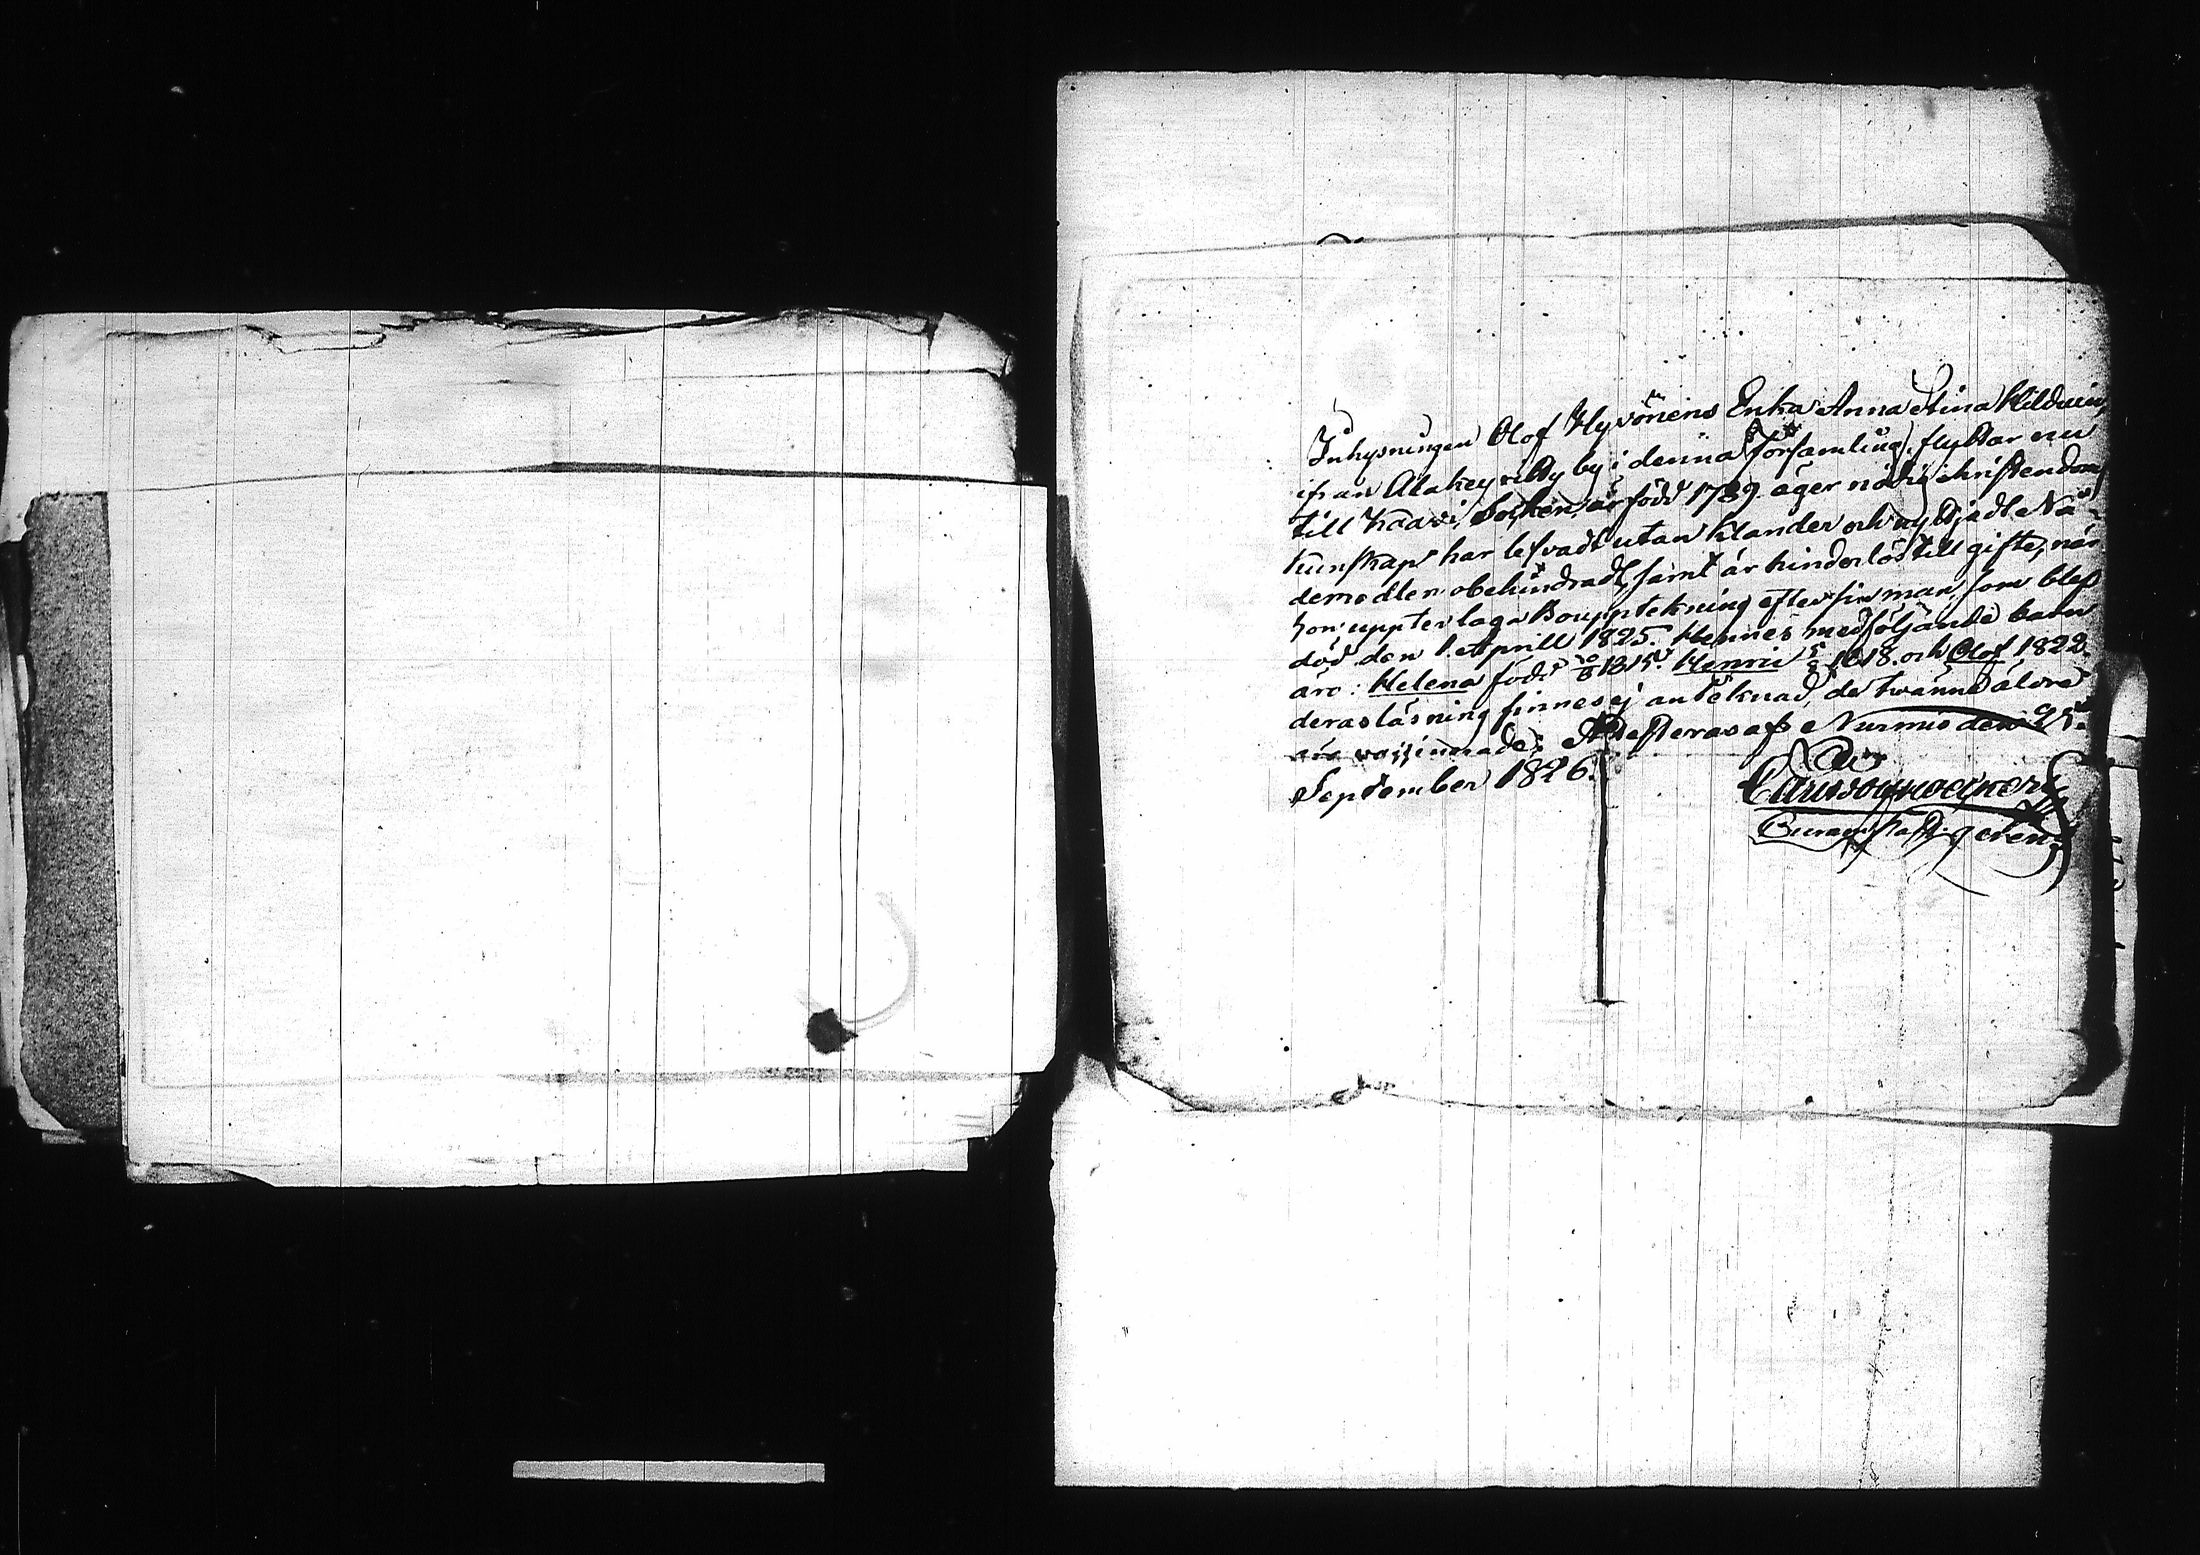 Inhysningen Olof Hyvönens Enka Anna Stina Hilduin,
ifrån Alakeyritty by i denna Församling, flyttar nu
till Kaavi Socken, är född 1789. äger nödig christendoms
kunskap har lefvadt utan klander och nyttjadt Na-
demedlen obehindradt, samt är hinderlös till gifte, när
hon uppter laga Boupptekning efter sin man, som blef
död den 1. Aprill 1825. Hennes medföljande barn
äro: Helena född 1815. Henric 1818. och Olof 1822.
deras läsning finnes ej anteknad, de twänne äldre
äro vaccinerade; Attesteras af Nurmis den 25.
September 1826.